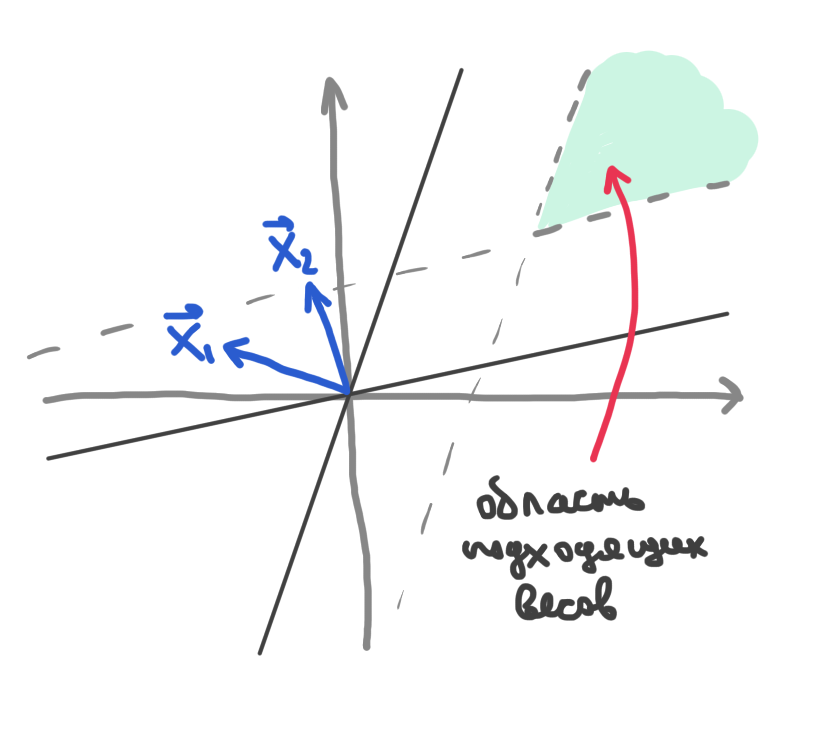 x⃗₂
x⃗₁
область
подходящих
весов